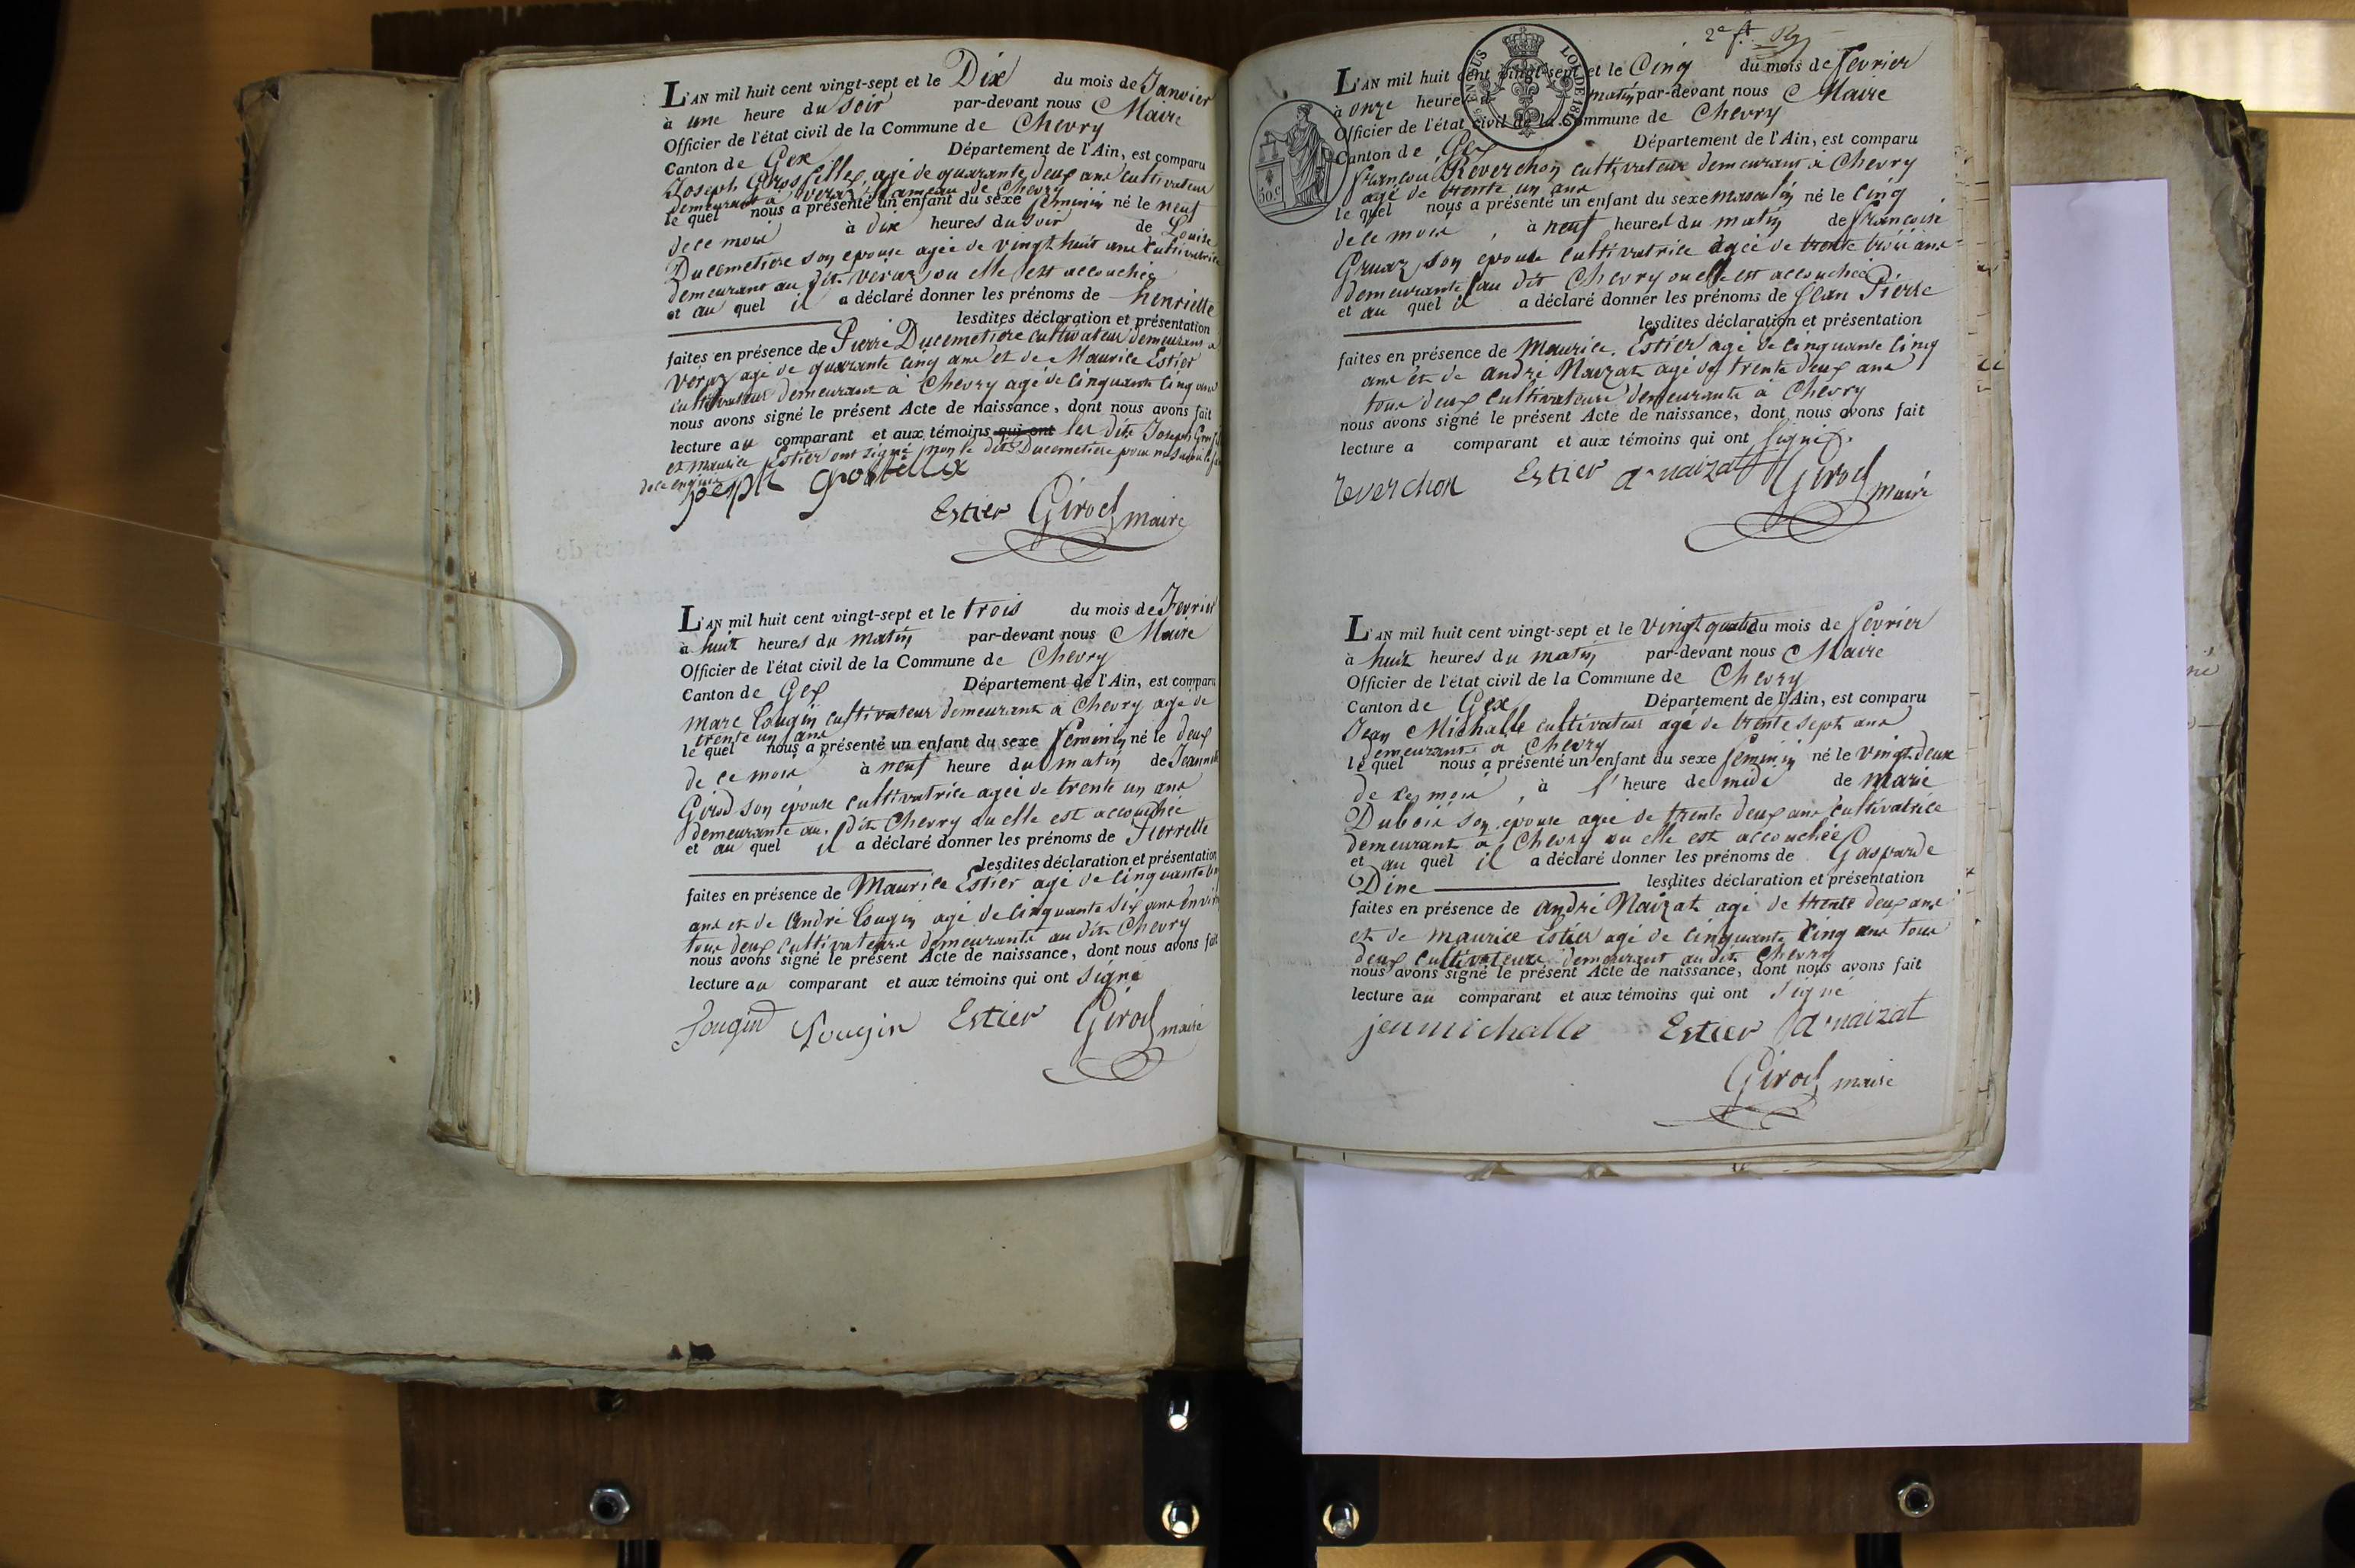 L'AN mil huit cent vingt-sept et le Dix du mois de Janvier
à une heure du soir par-devant nous Maire
Officier de l'état civil de la Commune de Chevry
Canton de Gex Département de l'Ain, est comparu
Joseph agé de quarante deux ans cultivateur
demeurant a veraz hameau de Chevry
le quel nous a présenté un enfant du sexe feminin né le neuf
de ce mois à dix heures du soir de Louise
Ducemetiere son epouse agée de vingt huit ans cultivatrice
demeurant au dit veraz ou elle est accouchée
et au quel il a déclaré donner les prénoms de henriette
lesdites déclaration et présentation
faites en présence de Pierre Ducemetiere cultivateur demeurant a
veraz agé de quarante cinq ans et de Maurice Estier
cultivateur demeurant à Chevry agé de cinquante cinq ans
nous avons signé le présent Acte de naissance, dont nous avons fait
lecture au comparant et aux témoins qui ont les dits Joseph
et maurice Estier ont signé non le dit Ducemetiere pour ne
de ce enquis
joseph
Estier Girod maire
L'AN mil huit cent vingt-sept et le trois du mois de Fevrier
à huit heures du matin par-devant nous Maire
Officier de l'état civil de la Commune de Chevry
Canton de Gex Département de l'Ain, est comparu
marc Lougin cultivateur demeurant a Chevry agé de
trente un ans
le quel nous a présenté un enfant du sexe feminin né le deux
de ce mois à neuf heure du matin de
Girod son epouse cultivatrice agée de trente un ans
demeurante au dit Chevry ou elle est accouchée
et au quel il a déclaré donner les prénoms de Pierrette
lesdites déclaration et présentation
faites en présence de Maurice Estier agé de cinquante
ans et de André Lougin agé de cinquante six ans
tous deux cultivateurs demeurants au dit Chevry
nous avons signé le présent Acte de naissance, dont nous avons fait
lecture au comparant et aux témoins qui ont signé
Lougin Lougin Estier Girod maire
2e ft.
L'AN mil huit cent vingt-sept et le Cinq du mois de fevrier
à onze heures matin par-devant nous Maire
Officier de l'état civil de la Commune de Chevry
Canton de Gex Département de l'Ain, est comparu
françois Reverchon cultivateur demeurant a Chevry
agé de trente un ans
le quel nous a présenté un enfant du sexe masculin né le cinq
de ce mois, à neuf heures du matin de françoise
Gruaz son epouse cultivatrice agée de trente trois ans
demeurante au dit Chevry ou elle est accouchée
et au quel il a déclaré donner les prénoms de Jean Pierre
lesdites déclaration et présentation
faites en présence de Maurice Estier agé de cinquante cinq
ans et de andré Naizat agé de trente deux ans
tous deux cultivateurs demeurants à Chevry
nous avons signé le présent Acte de naissance, dont nous avons fait
lecture a comparant et aux témoins qui ont signé.
reverchon Estier a naizat Girod maire
LOI DE
50c
L'AN mil huit cent vingt-sept et le Vingt quatre du mois de fevrier
à huit heures du matin par-devant nous Maire
Officier de l'état civil de la Commune de Chevry
Canton de Gex Département de l'Ain, est comparu
Jean Michalle cultivateur agé de trente sept ans
demeurant a Chevry
le quel nous a présenté un enfant du sexe feminin né le vingt deux
de ce mois, à l'heure de midi de marie
Dubois son epouse agée de trente deux ans cultivatrice
demeurant a Chevry ou elle est accouchée
et au quel il a déclaré donner les prénoms de Gasparde
Dine lesdites déclaration et présentation
faites en présence de andré Naizat agé de trente deux ans
et de maurice Estier agé de cinquante cinq ans tous
deux cultivateurs demeurant au dit Chevry
nous avons signé le présent Acte de naissance, dont nous avons fait
lecture au comparant et aux témoins qui ont signé
jeu michalle Estier a naizat
Girod maire